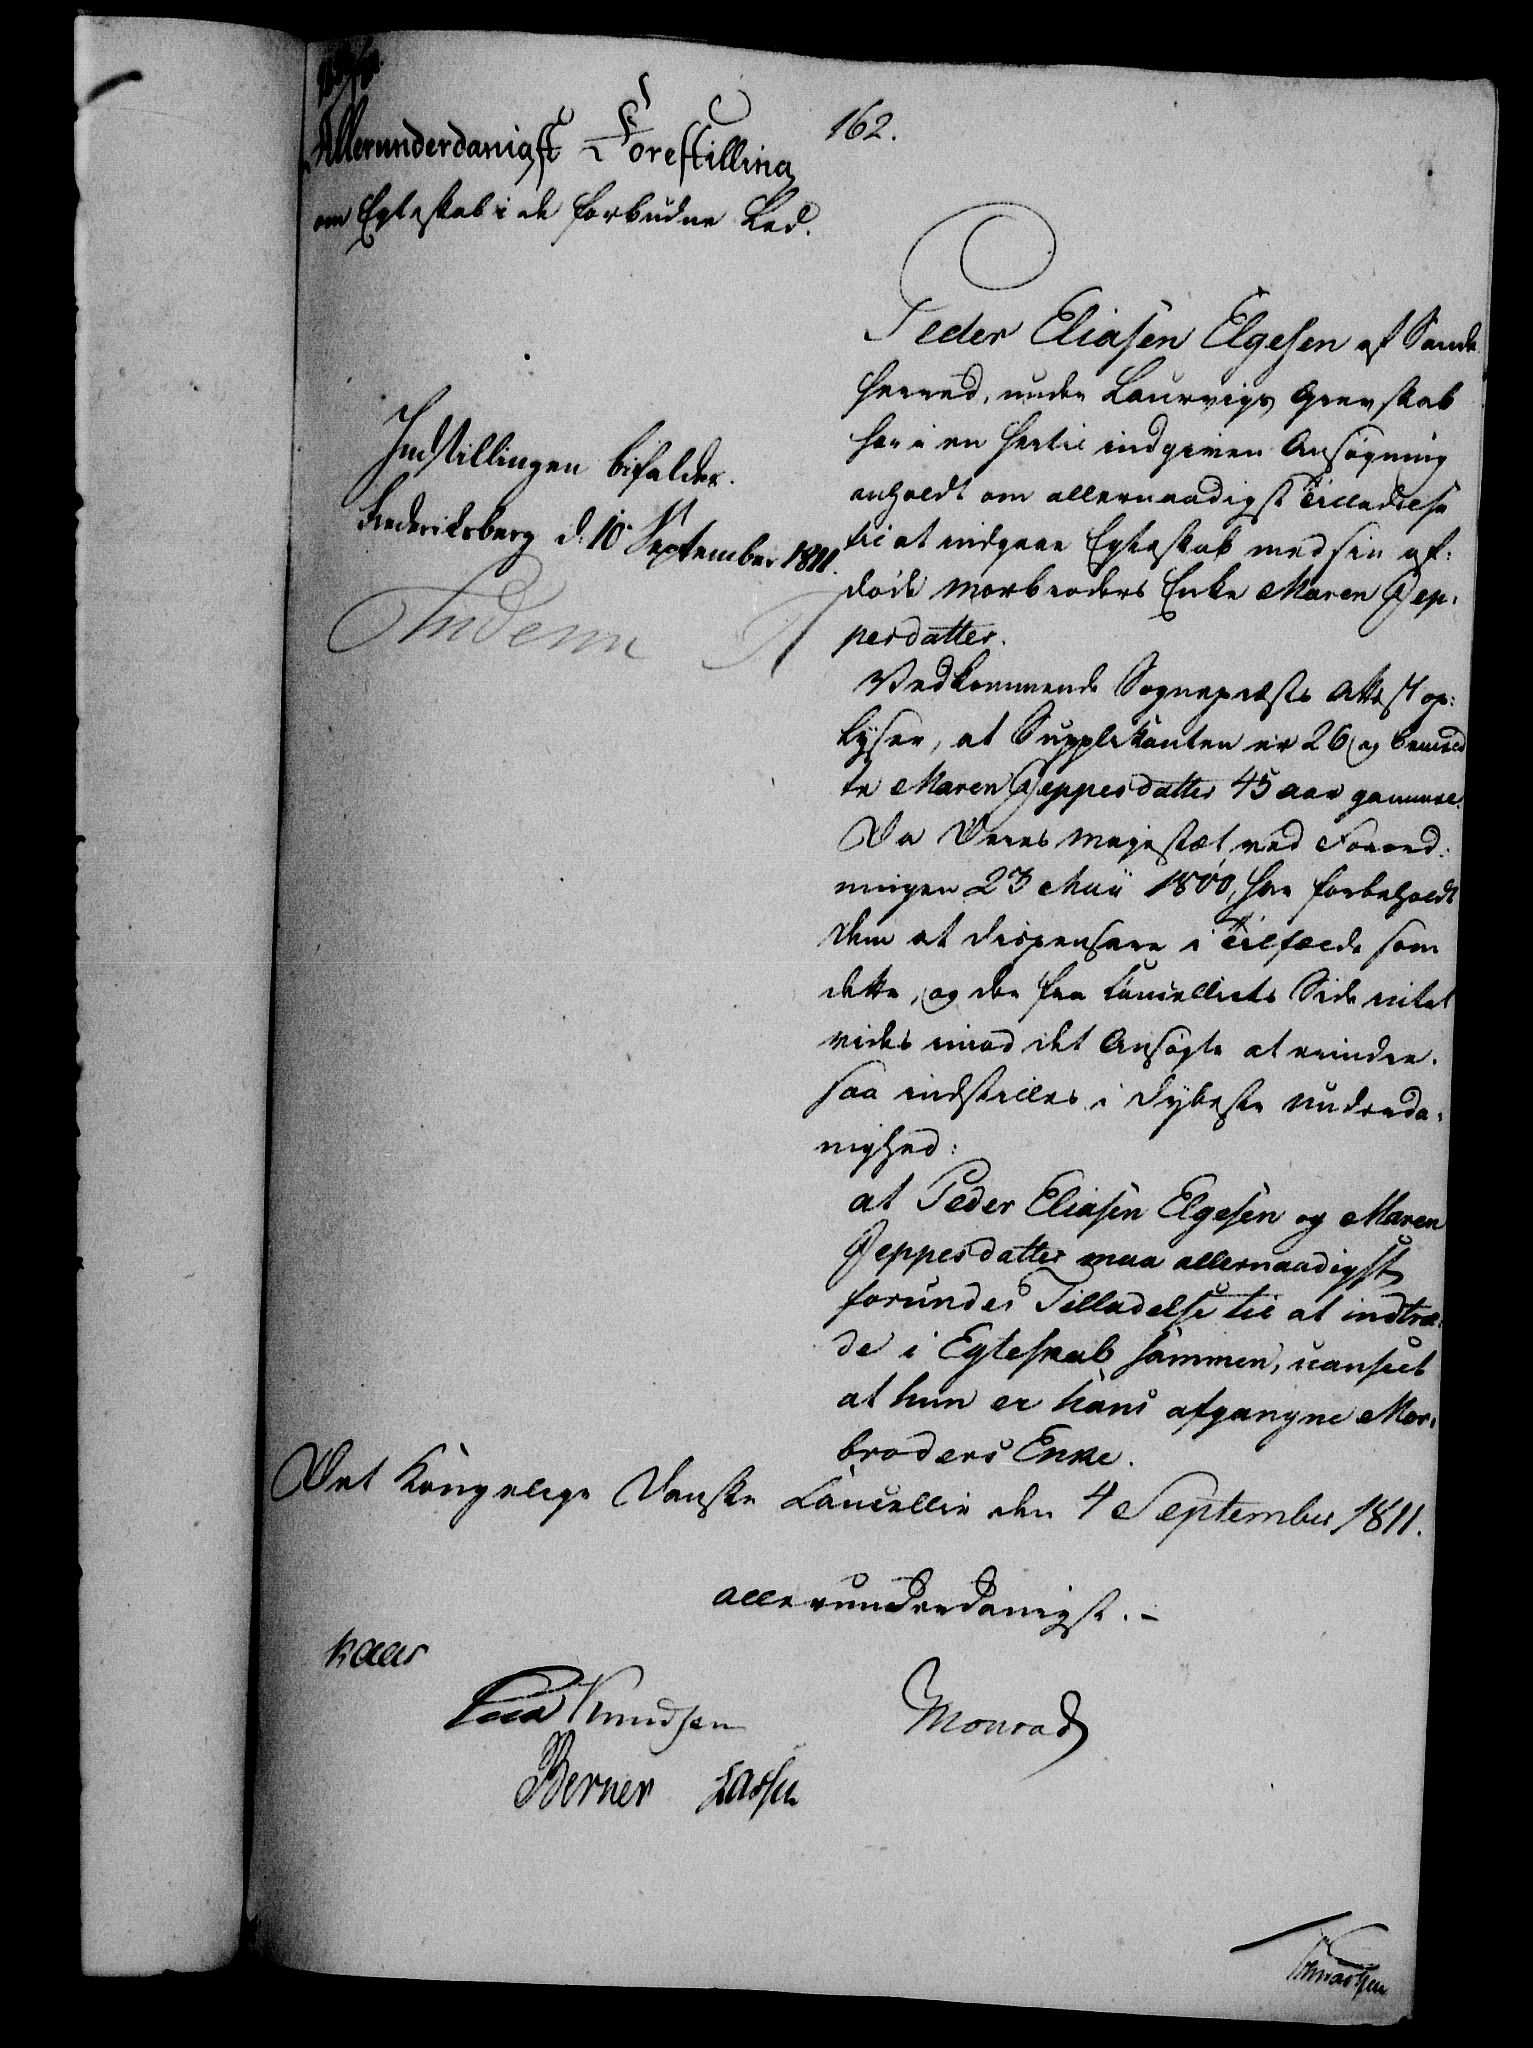 162.
Allerunderdanigst Forestilling
om Egteskab i de forbudne Led.
Indstillingen bifaldes.
Frederiksberg d: 10 September 1811.
Peder Eliasen Elgesen af Sande
herred, under Laurvigs Grevskab
har i en hertil indgiven Ansøgning
anholdt om allernaadigst Tilladelse
til at indgaae Egteskab med sin af:
døde Morbroders Enke Maren Jep:
pesdatter.
Vedkommende Sognepræsts Attest op:
lyser, at Supplikanten er 26 og bemeld
te Maren Jeppesdatter 45 aar gammel.
Da Deres Majestæt ved Forord:
ningen 23 Maii 1800, har forbeholdt
Dem at dispensere i Tilfælde som
dette, og der fra Cancelliets Side intet
vides imod det Ansøgte at erindre.
saa indstilles i dybeste Underda:
nighed:
at Peder Eliasen Elgesen og Maren
Jeppesdatter maa allernaadigst
forundes Tilladelse til at indtræ:
de i Egteskab sammen, uanseet
at hun er hans afgangne Mor:
broders Enke.
Det Kongelige Danske Cancellie den 4 September 1811.
allerunderdanigst. –
Kaas
Knudsen Monrad
Berner Lassen